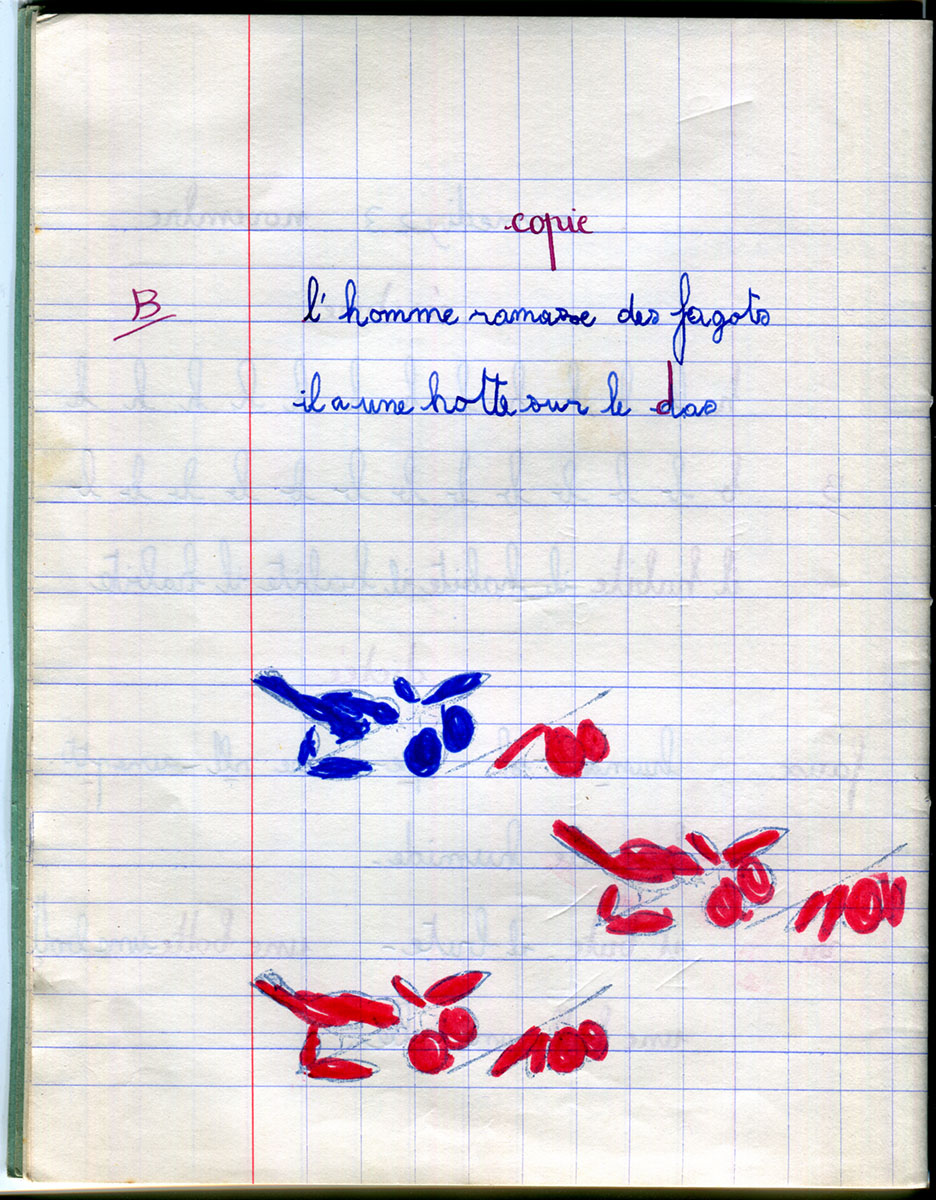 copie
B
l'homme ramasse des fagots
il a une hotte sur le dos